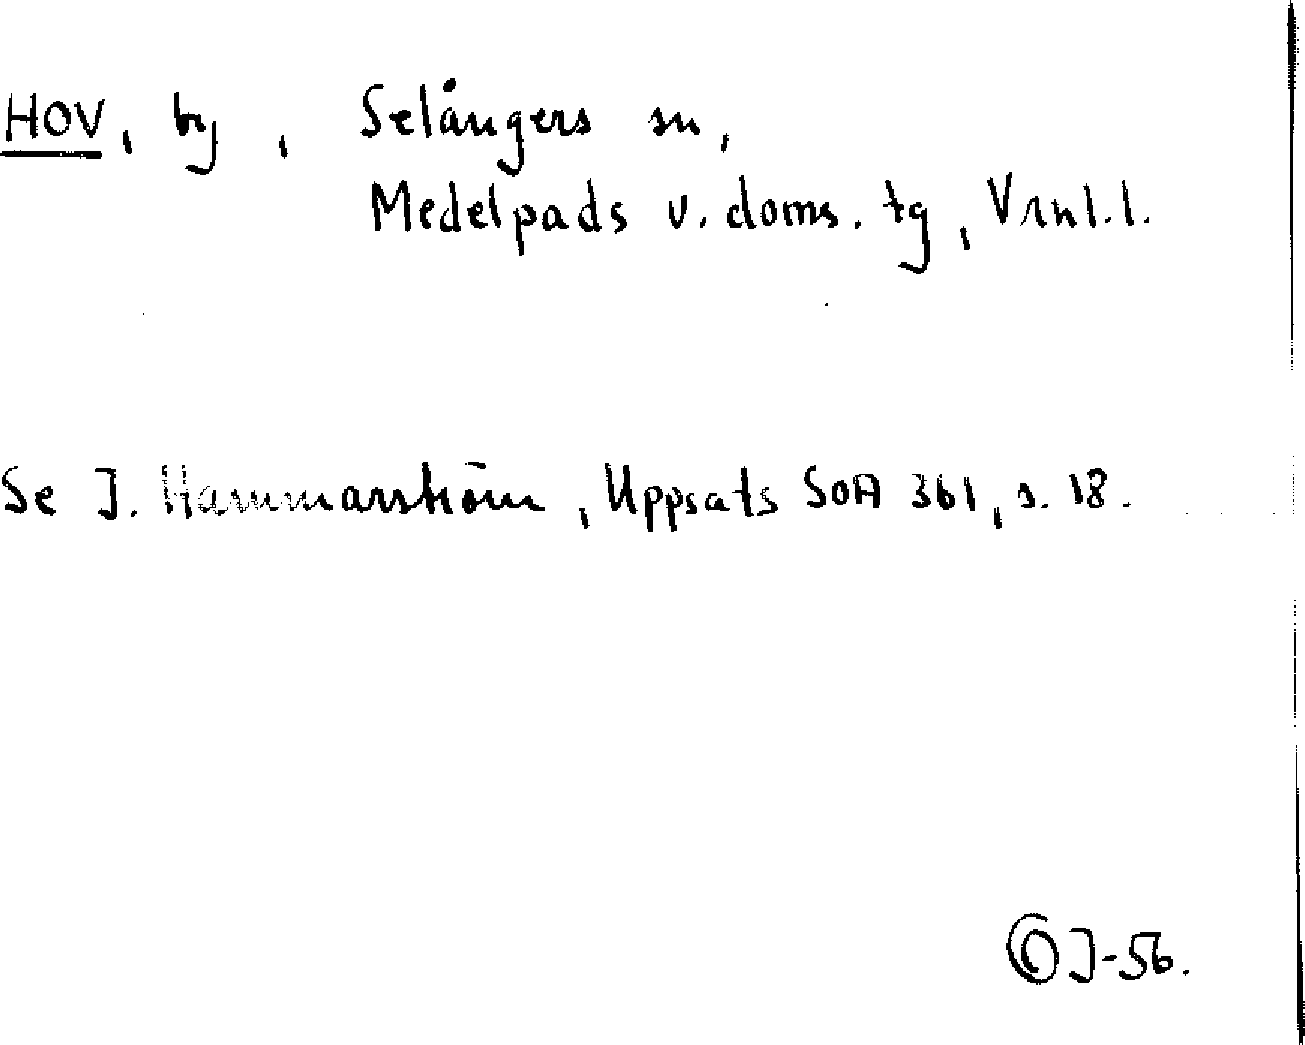 HOV, by, Selångers sn,
Medelpads v. doms. tg, Vrnl.l.
Se J. Hammarström, Uppsats SOA 361, s. 18.
J-56.